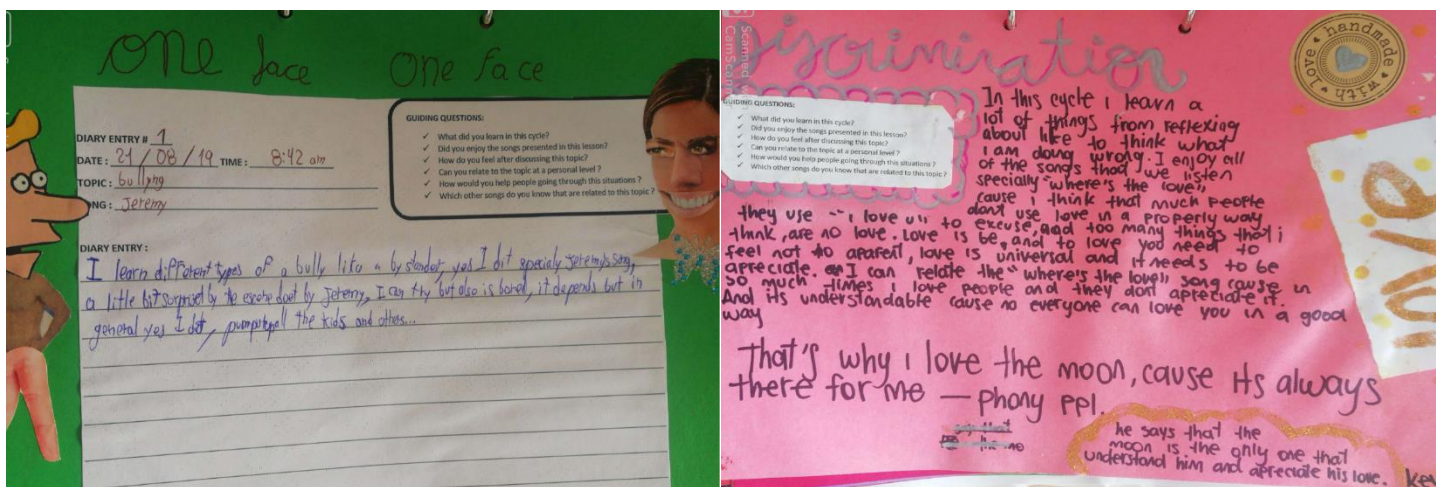 one face one face
DIARY ENTRY # 1
DATE: 21 / 08 / 19 TIME: 8:42 am
TOPIC: bullyng
NG: Jeremy
GUIDING QUESTIONS:
✓ What did you learn in this cycle?
✓ Did you enjoy the songs presented in this lesson?
✓ How do you feel after discussing this topic?
✓ Can you relate to the topic at a personal level?
✓ How would you help people going through this situations?
✓ Which other songs do you know that are related to this topic?
DIARY ENTRY:
I learn different types of a bully like a by stander, yes I dit specialy jeremy's song,
a litle bit surprised by the by Jeremy, I can try but also is bored, it depends but in
general yes I dit, the kids and others...
Discrimination
Scanned w
CamScann
handmade with love
GUIDING QUESTIONS:
✓ What did you learn in this cycle?
✓ Did you enjoy the songs presented in this lesson?
✓ How do you feel after discussing this topic?
✓ Can you relate to the topic at a personal level?
✓ How would you help people going through this situations?
✓ Which other songs do you know that are related to this topic?
In this cycle i learn a
lot of things from reflexing
about like to think what
I am doing wrong. I enjoy all
of the songs that we listen
specially "where's the love"
cause i think that much people
don't use love in a properly way
they use "i love u" to excuse, and too many things that i
think, are no love. Love is be, and to love you need to
feel not to apareit, love is universal and it needs to be
apreciate. I can relate the "where's the love" song cause in
so much times i love people and they dont apreciate it.
And its understandable cause no everyone can love you in a good
way
That's why i love the moon, cause its always
there for me — phony ppl.
he says that the
moon is the only one that
understand him and apreciate his love.
love